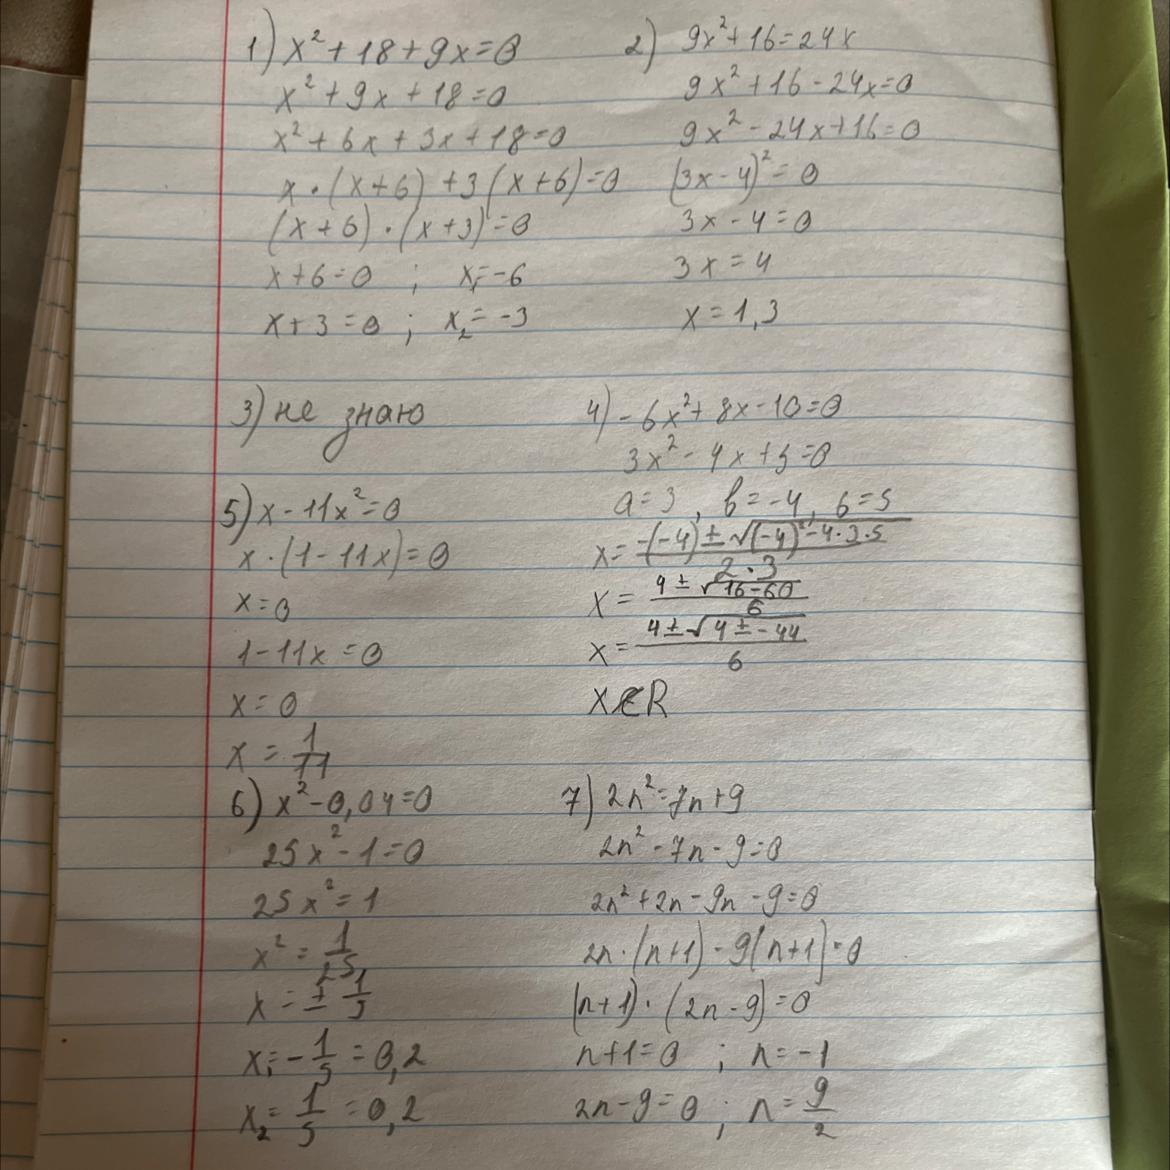 1) x² + 18 + 9x = 0
x² + 9x + 18 = 0
x² + 6x + 3x + 18 = 0
x · (x + 6) + 3 (x + 6) = 0
(x + 6) · (x + 3) = 0
x + 6 = 0 ; x₁ = -6
x + 3 = 0 ; x₂ = -3
2) 9x² + 16 = 24x
9x² + 16 - 24x = 0
9x² - 24x + 16 = 0
(3x - 4)² = 0
3x - 4 = 0
3x = 4
x = 1,3
3) не знаю
4) - 6x² + 8x - 10 = 0
3x² - 4x + 5 = 0
a = 3 , b = -4, б = 5
x = (-(-4) ± √((-4)² - 4·3·5)) / (2·3)
x = (4 ± √(16 - 60)) / 6
x = (4 ± √(4 ± - 44)) / 6
x ∉ R
5) x - 11x² = 0
x · (1 - 11x) = 0
x = 0
1 - 11x = 0
x = 0
x = 1/11
6) x² - 0,04 = 0
25x² - 1 = 0
25x² = 1
x² = 1/25
x = ± 1/5
x₁ = - 1/5 = 0,2
x₂ = 1/5 = 0,2
7) 2n² = 7n + 9
2n² - 7n - 9 = 0
2n² + 2n - 9n - 9 = 0
2n · (n + 1) - 9(n + 1) = 0
(n + 1) · (2n - 9) = 0
n + 1 = 0 ; n = -1
2n - 9 = 0 ; n = 9/2